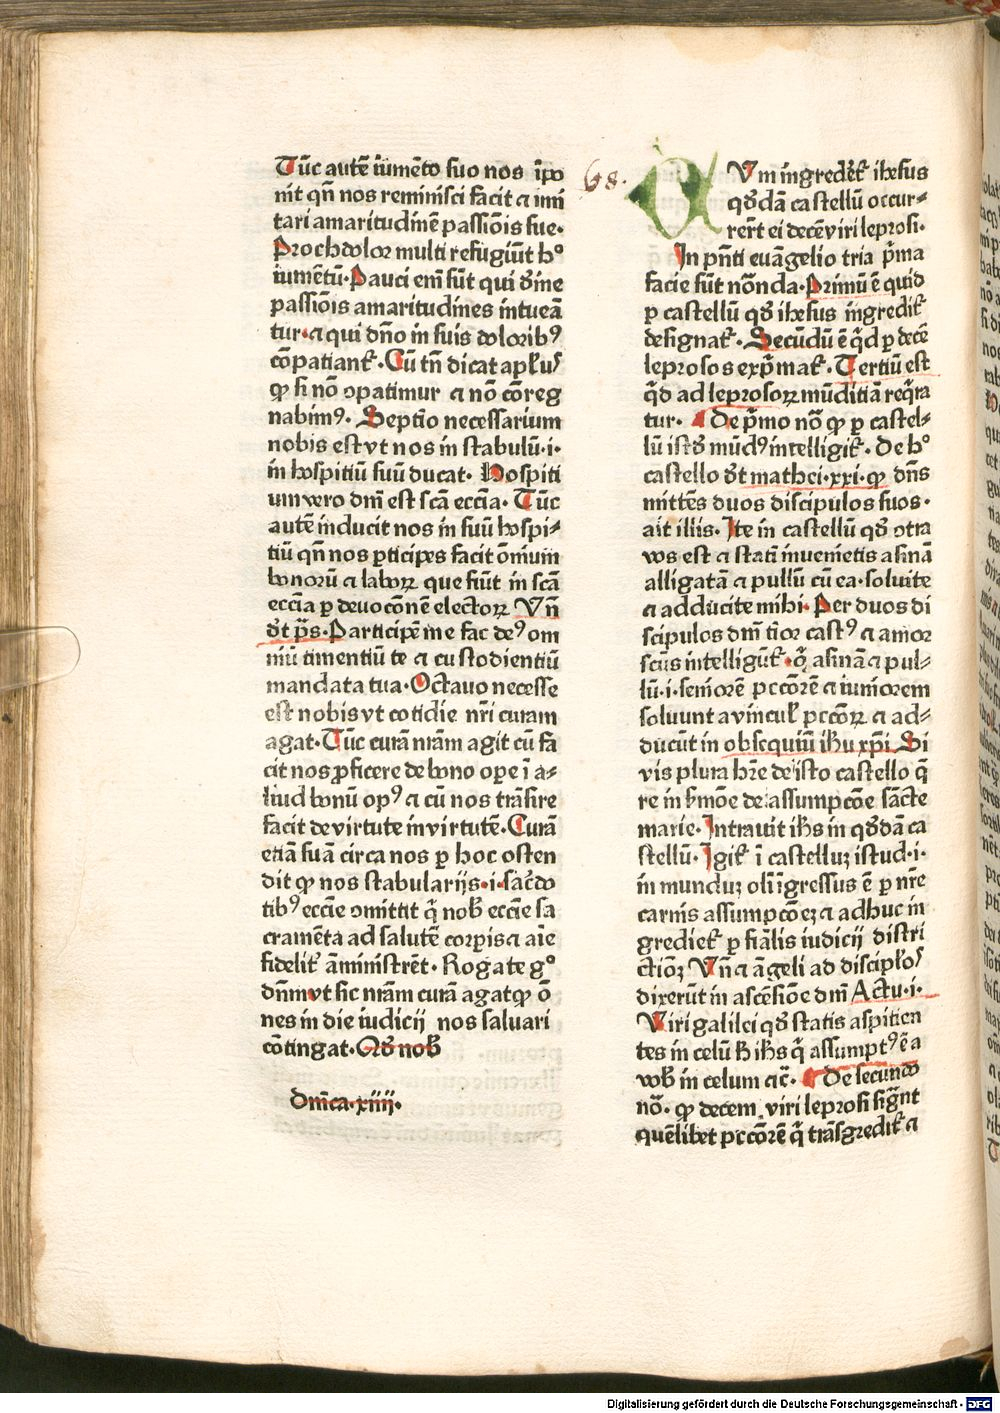 Tūc autē iumēto suo nos īpo
nit qn̄ nos reminisci facit ⁊ imi
tari amaritudinē passiōis sue.
Proch dolor multi refugiūt hͦ
iumētū. Pauci eni͞ sūt qui dn̄ice
passiōis amaritudines intueā
tur. ⁊ qui dn̄o in suis doloribꝰ
cōpatianť. Cū tn̄ dicat apl̓us
ꝙ si nō ↄpatimur ⁊ nō cōreg
nabimꝰ. Septīo necessarium
nobis est vt nos in stabulū .i.
in hospitiū suū ducat. Hospiti
um vero dn̄i est scā eccīa. Tūc
autē inducit nos in suū hospi⸗
tiū qn̄ nos ꝑticipes facit om̄ium
bonorū ⁊ laboꝝ que fiūt in scā
eccīa ꝑ deuocōnē electoꝝ Vn̄
dt̄ ps̄. Participē me fac deꝰ om
niū timentiū te ⁊ custodientiū
mandata tua. Octauo necesse
est nobis vt cotidie nr̄i curam
agat. Tūc curā nr̄am agit cū fa
cit nos ꝓficere de bono oꝑe ī a⸗
liud bonū opꝰ ⁊ cū nos trāsire
facit de virtute in virtutē. Curā
etiā suā circa nos ꝑ hoc osten
dit ꝙ nos stabularijs .i. sac̄do
tibꝰ eccīe ↄmittit q̄ nob̄ eccīe sa
cramēta ad salutē corꝑis ⁊ aīe
fidelit̓ āministrēt. Rogate gͦ
dn̄m vt sic nr̄am curā agat ꝙ ō
nes in die iudicij nos saluari
cōtingat. Qd̄ nob̄
Dn̄ica .xiiij.
68.
CVm ingredēť ihesus
qd̄dā castellū occur⸗
rēr̄t ei decē viri leprosi.
In pn̄ti euāgelio tria p̄ma
facie sūt nōnda. Primū ē quid
ꝑ castellū qd̄ ihesus ingrediť
designať. Secūdū ē qd̄ ꝑ decē
leprosos exp̄mať. Tertiū est
qd̄ ad leprosoꝝ mūditiā req̄ra
tur. De p̄mo nō ꝙ ꝑ castel⸗
lū istd̄ mūdꝰ intelligiť. De hͦ
castello dt̄ mathei .xxi. ꝙ dn̄s
mittēs duos discipulos suos.
ait illis. Ite in castellū qd̄ ↄtra
vos est ⁊ statī inuenietis asinā
alligatā ⁊ pullū cū ea. soluite
⁊ adducite mihi. Per duos di
scipulos dn̄i tīor castꝰ ⁊ amor
scūs intelligūť. q̄ asinā ⁊ pul⸗
lū .i. seniorē pccōrē ⁊ iuniorem
soluunt a vincul̓ pccōꝝ ⁊ ad⸗
ducūt in obsequiū ihu xp̄i. Si
vis plura hr̄e de isto castello q̄
re in s̄mōe de assumpcōe sācte
marie. Intrauit ihs̄ in qd̄dā ca
stellū. Igiť ī castelluꝫ istud .i.
in munduꝫ olī īgressus ē ꝑ nr̄e
carnis assumpcōeꝫ ⁊ adhuc in
gredieť ꝑ fīalis iudicij distri
ctiōꝫ Vn̄ ⁊ āgeli ad discipl̓os
dixerūt in ascēsiōe dn̄i Actu .i.
Viri galilei qd̄ statis aspicien
tes in celū h̄ ihs̄ q̄ assumptꝰ ē a
vob̄ in celum ⁊c̄. De secundo
nō. ꝙ decem viri leprosi sig̅nt
quēlibet pccōrē q̄ trāsgrediť ⁊
Digitalisierung gefördert durch die Deutsche Forschungsgemeinschaft - DFG